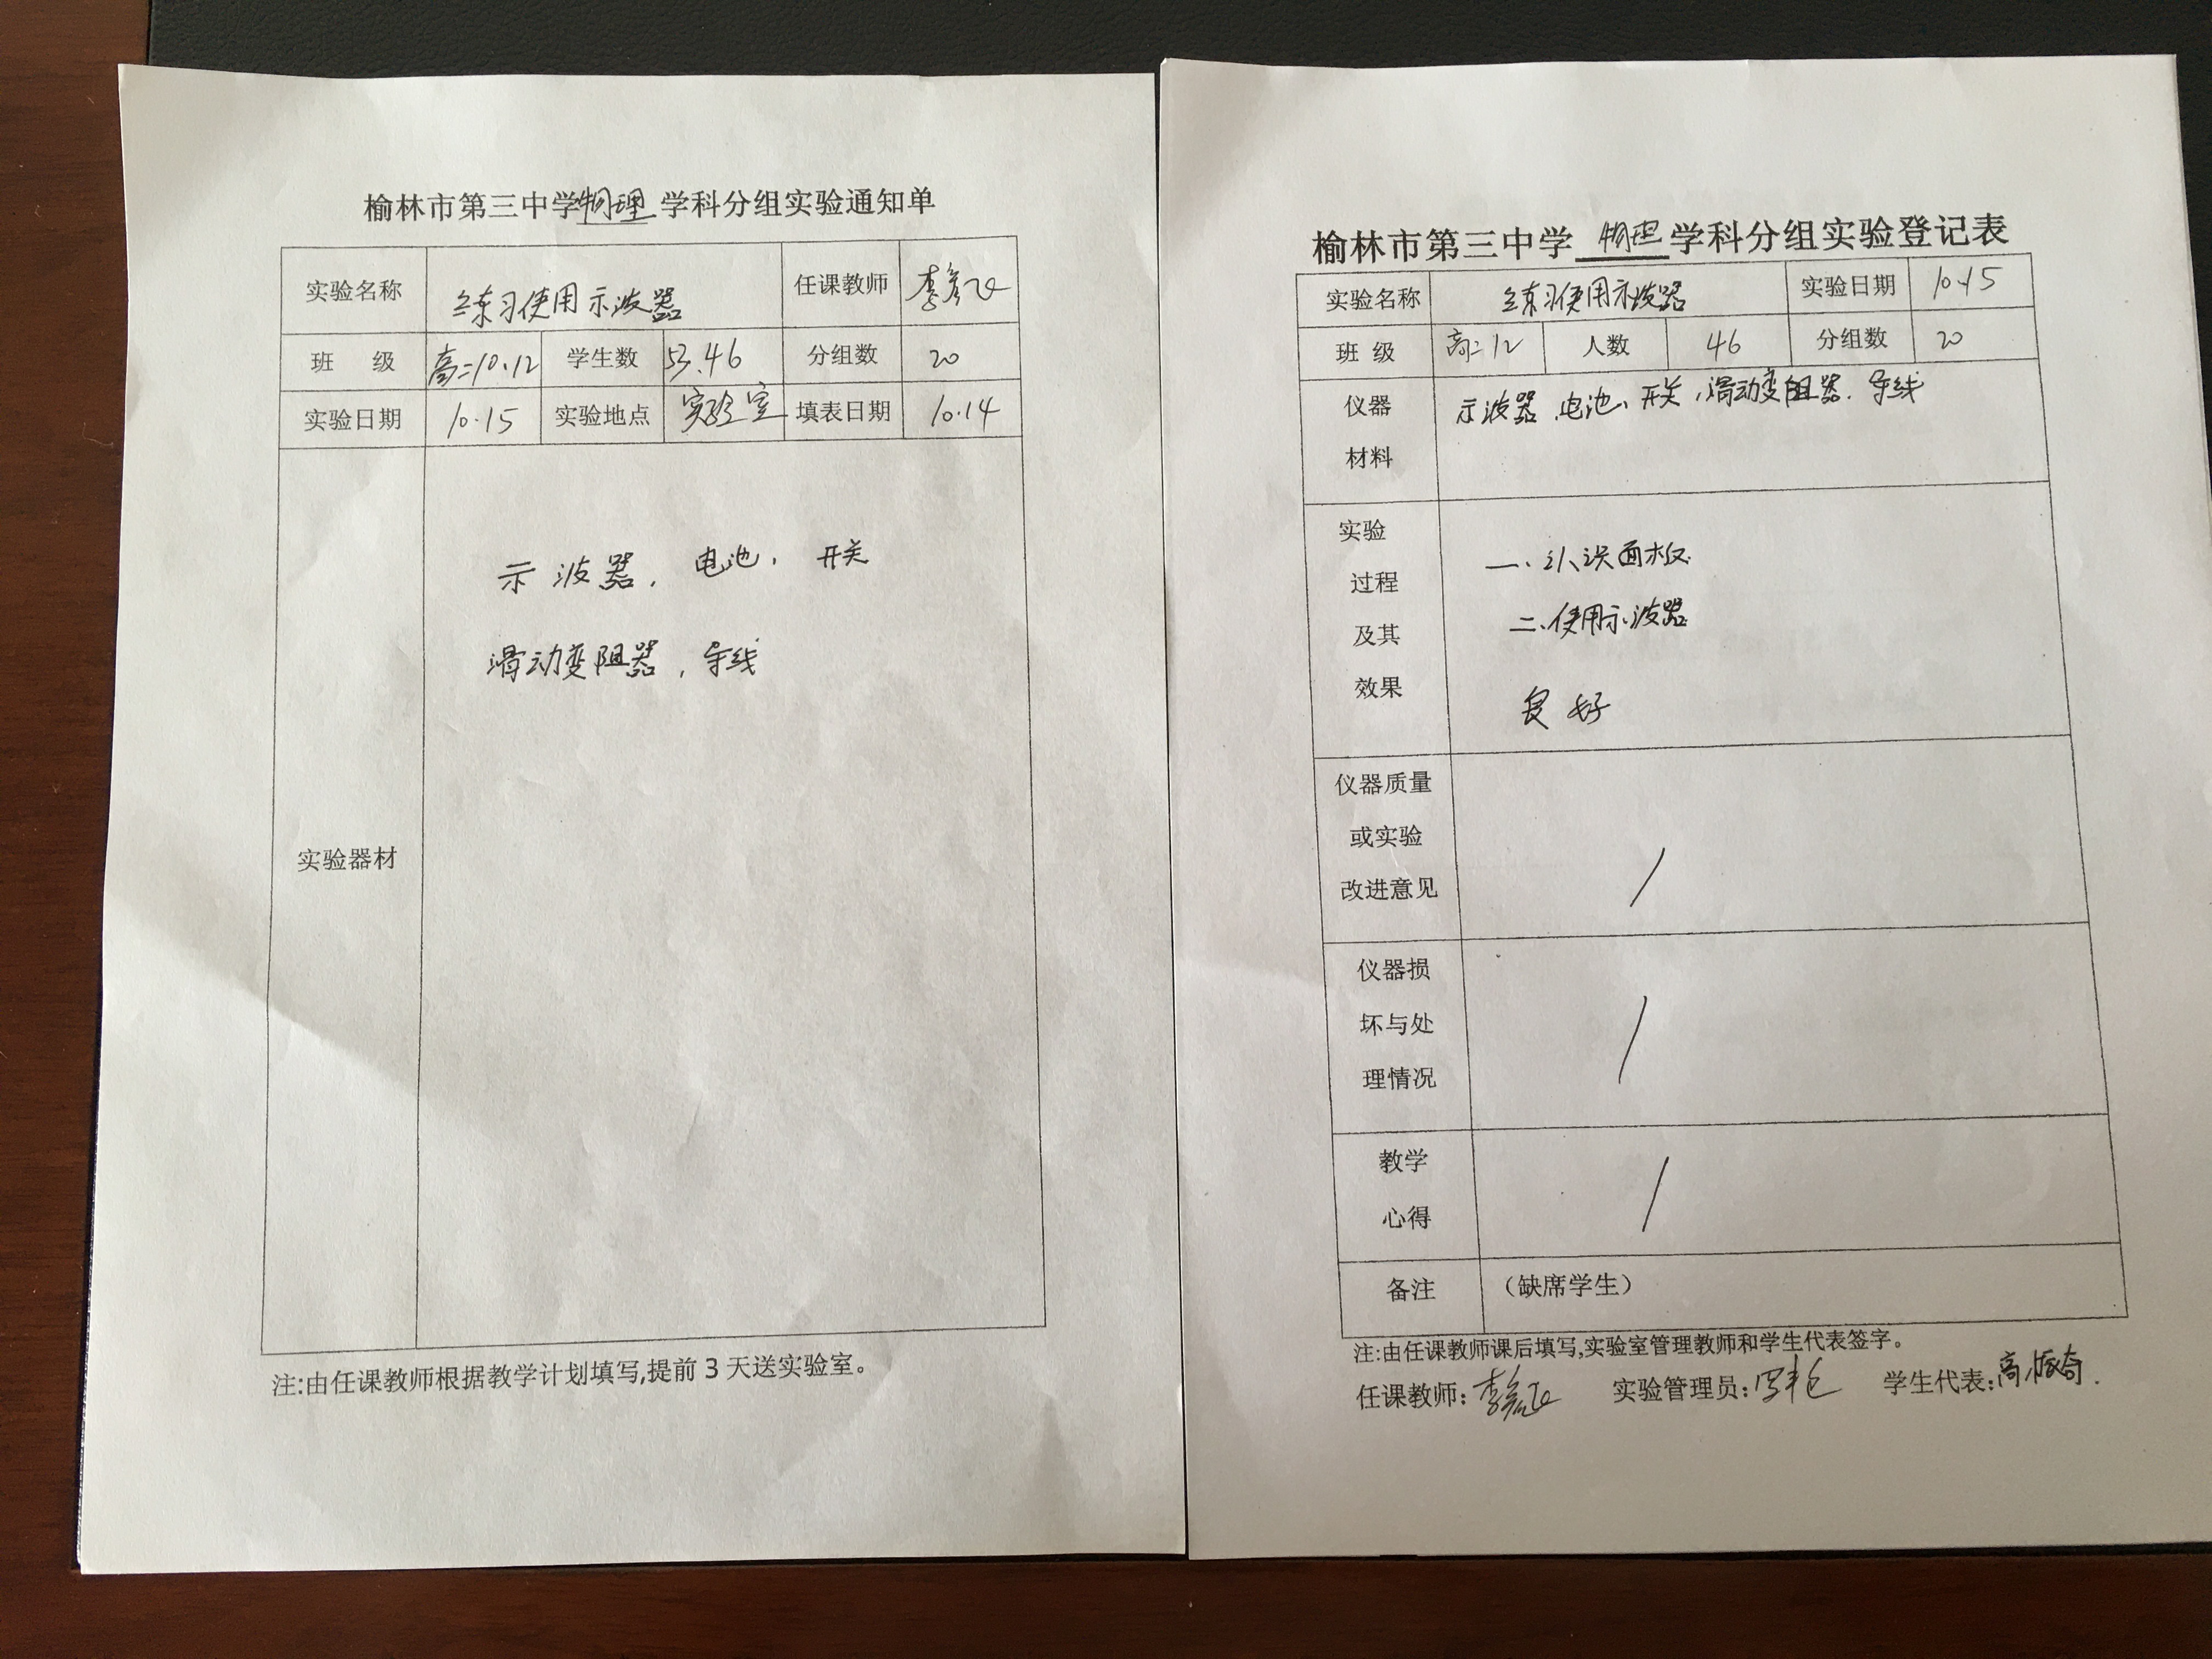 榆林市第三中学物理学科分组实验通知单
实验名称 练习使用示波器 任课教师 李
班 级 高二10.12 学生数 53.46 分组数 20
实验日期 10.15 实验地点 实验室 填表日期 10.14
实验器材
示波器，电池，开关
滑动变阻器，导线
注:由任课教师根据教学计划填写,提前 3 天送实验室。
榆林市第三中学 物理 学科分组实验登记表
实验名称 练习使用示波器 实验日期 10.15
班 级 高二12 人数 46 分组数 20
仪器
材料
示波器、电池、开关，滑动变阻器．导线
实验
过程
及其
效果
一、认识面板
二、使用示波器
良好
仪器质量
或实验
改进意见
/
仪器损
坏与处
理情况
/
教学
心得
/
备注 （缺席学生）
注:由任课教师课后填写,实验室管理教师和学生代表签字。
任课教师: 李 实验管理员: 学生代表: 高